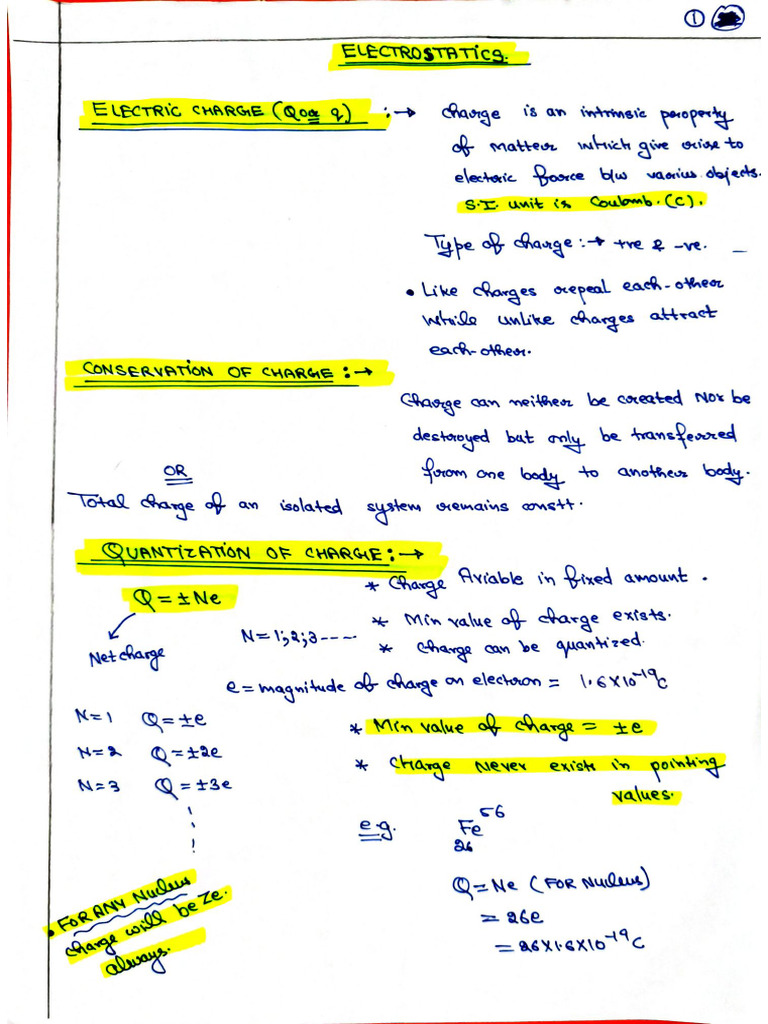 ①
ELECTROSTATICS.
ELECTRIC CHARGE (Q or q) :→ charge is an intrinsic property
of matter which give rise to
electric force b/w various objects.
S.I. unit is Coulomb. (C).
Type of charge :→ +ve & -ve.
• Like charges repel each-other
while unlike charges attract
each-other.
CONSERVATION OF CHARGE :→
Charge can neither be created Nor be
destroyed but only be transferred
from one body to another body.
OR
Total charge of an isolated system remains constt.
QUANTIZATION OF CHARGE :→
* Charge Aviable in fixed amount.
Q = ±Ne
* Min value of charge exists.
Net charge
N = 1,2,3 ----
* Charge can be quantized.
e = magnitude of charge on electron = 1.6×10⁻¹⁹C
N=1 Q = ±e
* Min value of charge = ±e
N=2 Q = ±2e
* Charge Never exists in pointing
values.
N=3 Q = ±3e
e.g. ₂₆Fe⁵⁶
Q = Ne (FOR Nucleus)
= 26e
= 26×1.6×10⁻¹⁹C
• FOR ANY Nucleus
charge will be Ze.
always.